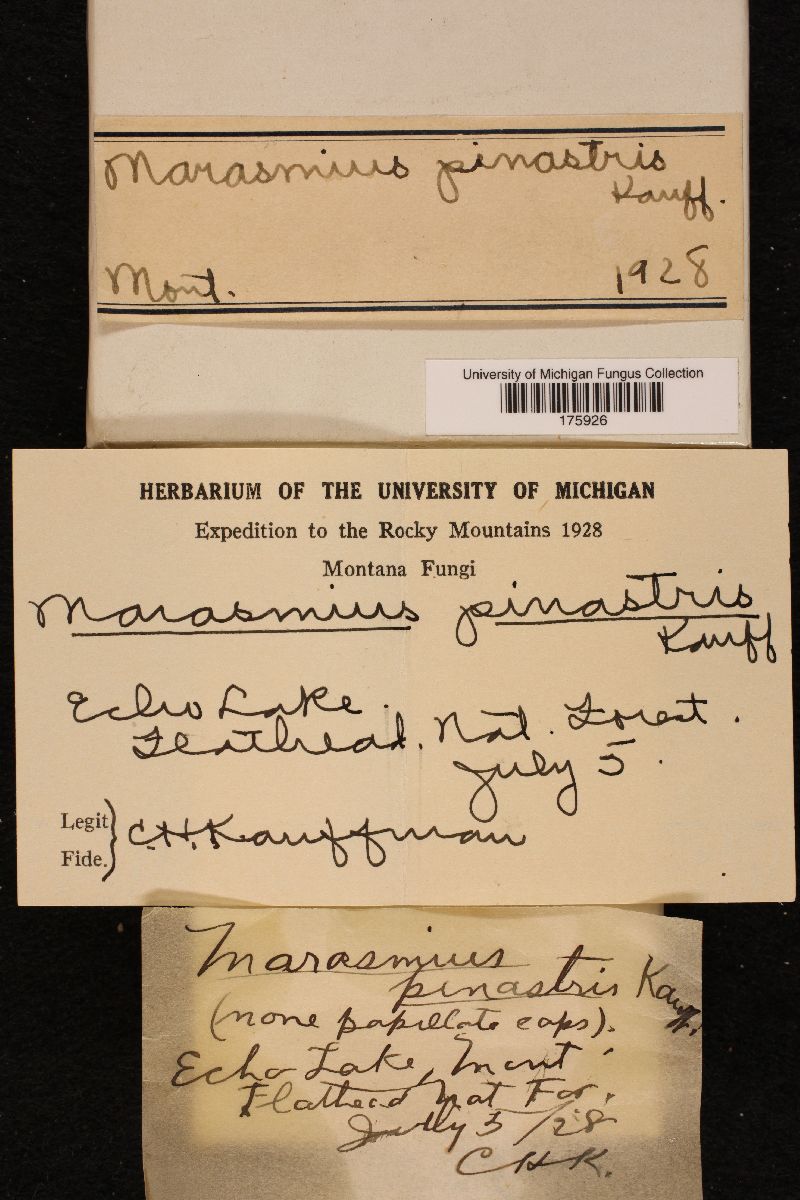 Marasmius pinastris
Kauff.
Mont. 1928
University of Michigan Fungus Collection
175926
HERBARIUM OF THE UNIVERSITY OF MICHIGAN
Expedition to the Rocky Mountains 1928
Montana Fungi
Marasmius pinastris
Kauff
Echo Lake.
Flathead. Nat. Forest.
July 5.
Legit
Fide. } C.H.Kauffman
Marasmius
pinastris Kauff.
(none papillate caps).
Echo Lake, Mont.
Flathead Nat For.
July 5/28
CHK.